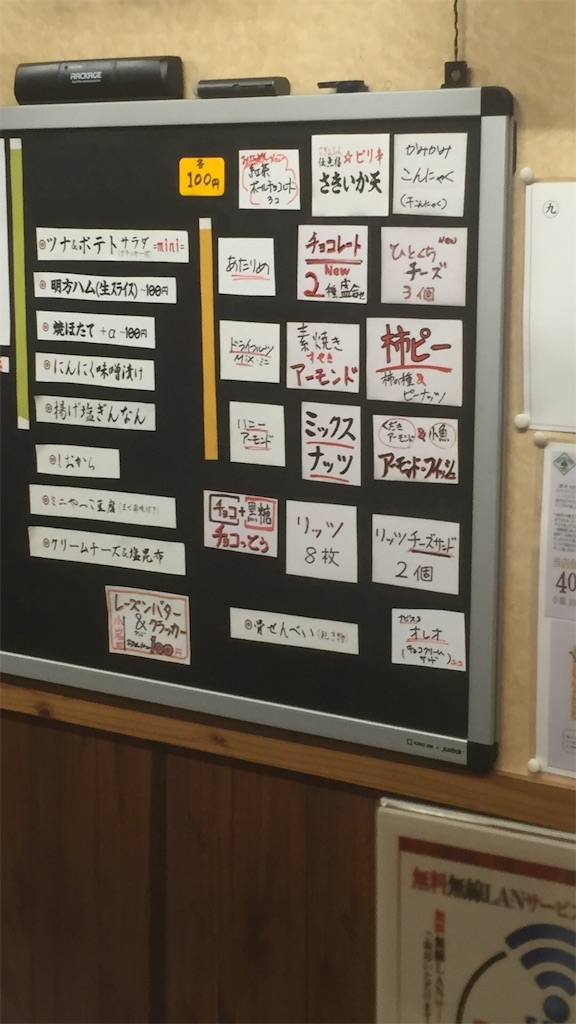 PACKAGE
各
100円
紅茶
ボールチョコレート
3コ
☆ピリ辛
さきいか天
かみかみ
こんにゃく
(干こんにゃく)
◎ツナ&ポテトサラダ=mini=
◎明方ハム(生スライス)~100円
◎焼ほたて +α~100円
◎にんにく味噌漬け
◎揚げ塩ぎんなん
◎しおから
◎ミニやっこ豆腐
◎クリームチーズ&塩昆布
あたりめ
チョコレート
New
2種盛合せ
ひとくち New
チーズ
3個
ドライフルーツ
MIX ミニ
素焼き
すやき
アーモンド
柿ピー
柿の種&
ピーナッツ
ハニー
アーモンド
ミックス
ナッツ
くだき
アーモンド
&
小魚
アーモンド・フィッシュ
チョコ+黒糖
チョコっとう
リッツ
8枚
リッツチーズサンド
2個
レーズンバター
&クラッカー
100円
◎骨せんべい
ナビスコ
オレオ
(チョコクリーム
サンド)
九
40
無料無線LANサービス
無料無線LANサービス